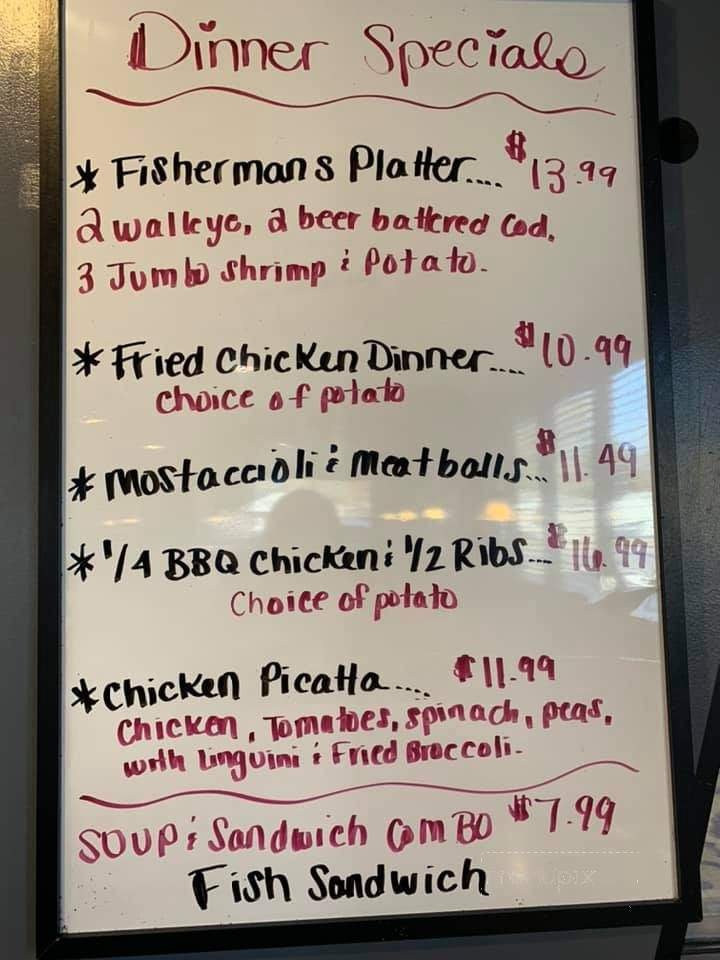 Dinner Specials
* Fishermans Platter.... $13.99
2 walleye, 2 beer battered Cod,
3 Jumbo Shrimp & Potato.
* Fried Chicken Dinner.... $10.99
choice of potato
* Mostaccioli & Meatballs... $11.49
* 1/4 BBQ Chicken & 1/2 Ribs... $16.99
Choice of potato
* Chicken Picatta.... $11.99
Chicken, Tomatoes, spinach, peas,
with linguini & Fried Broccoli.
SOUP & Sandwich ComBO $7.99
Fish Sandwich